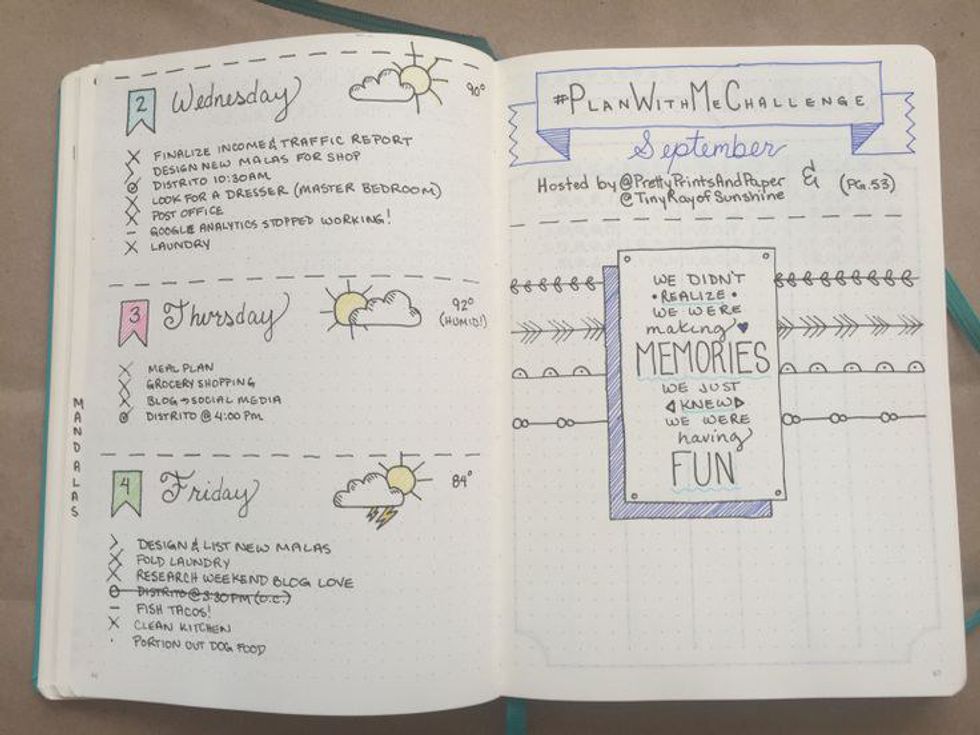 2 Wednesday 90°
X FINALIZE INCOME & TRAFFIC REPORT
> DESIGN NEW MALAS FOR SHOP
DISTRITO 10:30AM
X LOOK FOR A DRESSER (MASTER BEDROOM)
X POST OFFICE
– GOOGLE ANALYTICS STOPPED WORKING!
X LAUNDRY
3 Thursday 92°
(HUMID!)
X MEAL PLAN
X GROCERY SHOPPING
X BLOG → SOCIAL MEDIA
DISTRITO @ 4:00 PM
MANDALAS
4 Friday 84°
> DESIGN & LIST NEW MALAS
X FOLD LAUNDRY
X RESEARCH WEEKEND BLOG LOVE
DISTRITO @ 3:30 PM (O.C.)
– FISH TACOS!
X CLEAN KITCHEN
· PORTION OUT DOG FOOD
#PLANWITHMECHALLENGE
September
Hosted by @PrettyPrintsAndPaper &
@TinyRayofSunshine
(PG.53)
WE DIDN'T
• REALIZE •
WE WERE
making ♥
MEMORIES
WE JUST
KNEW
WE WERE
having
FUN